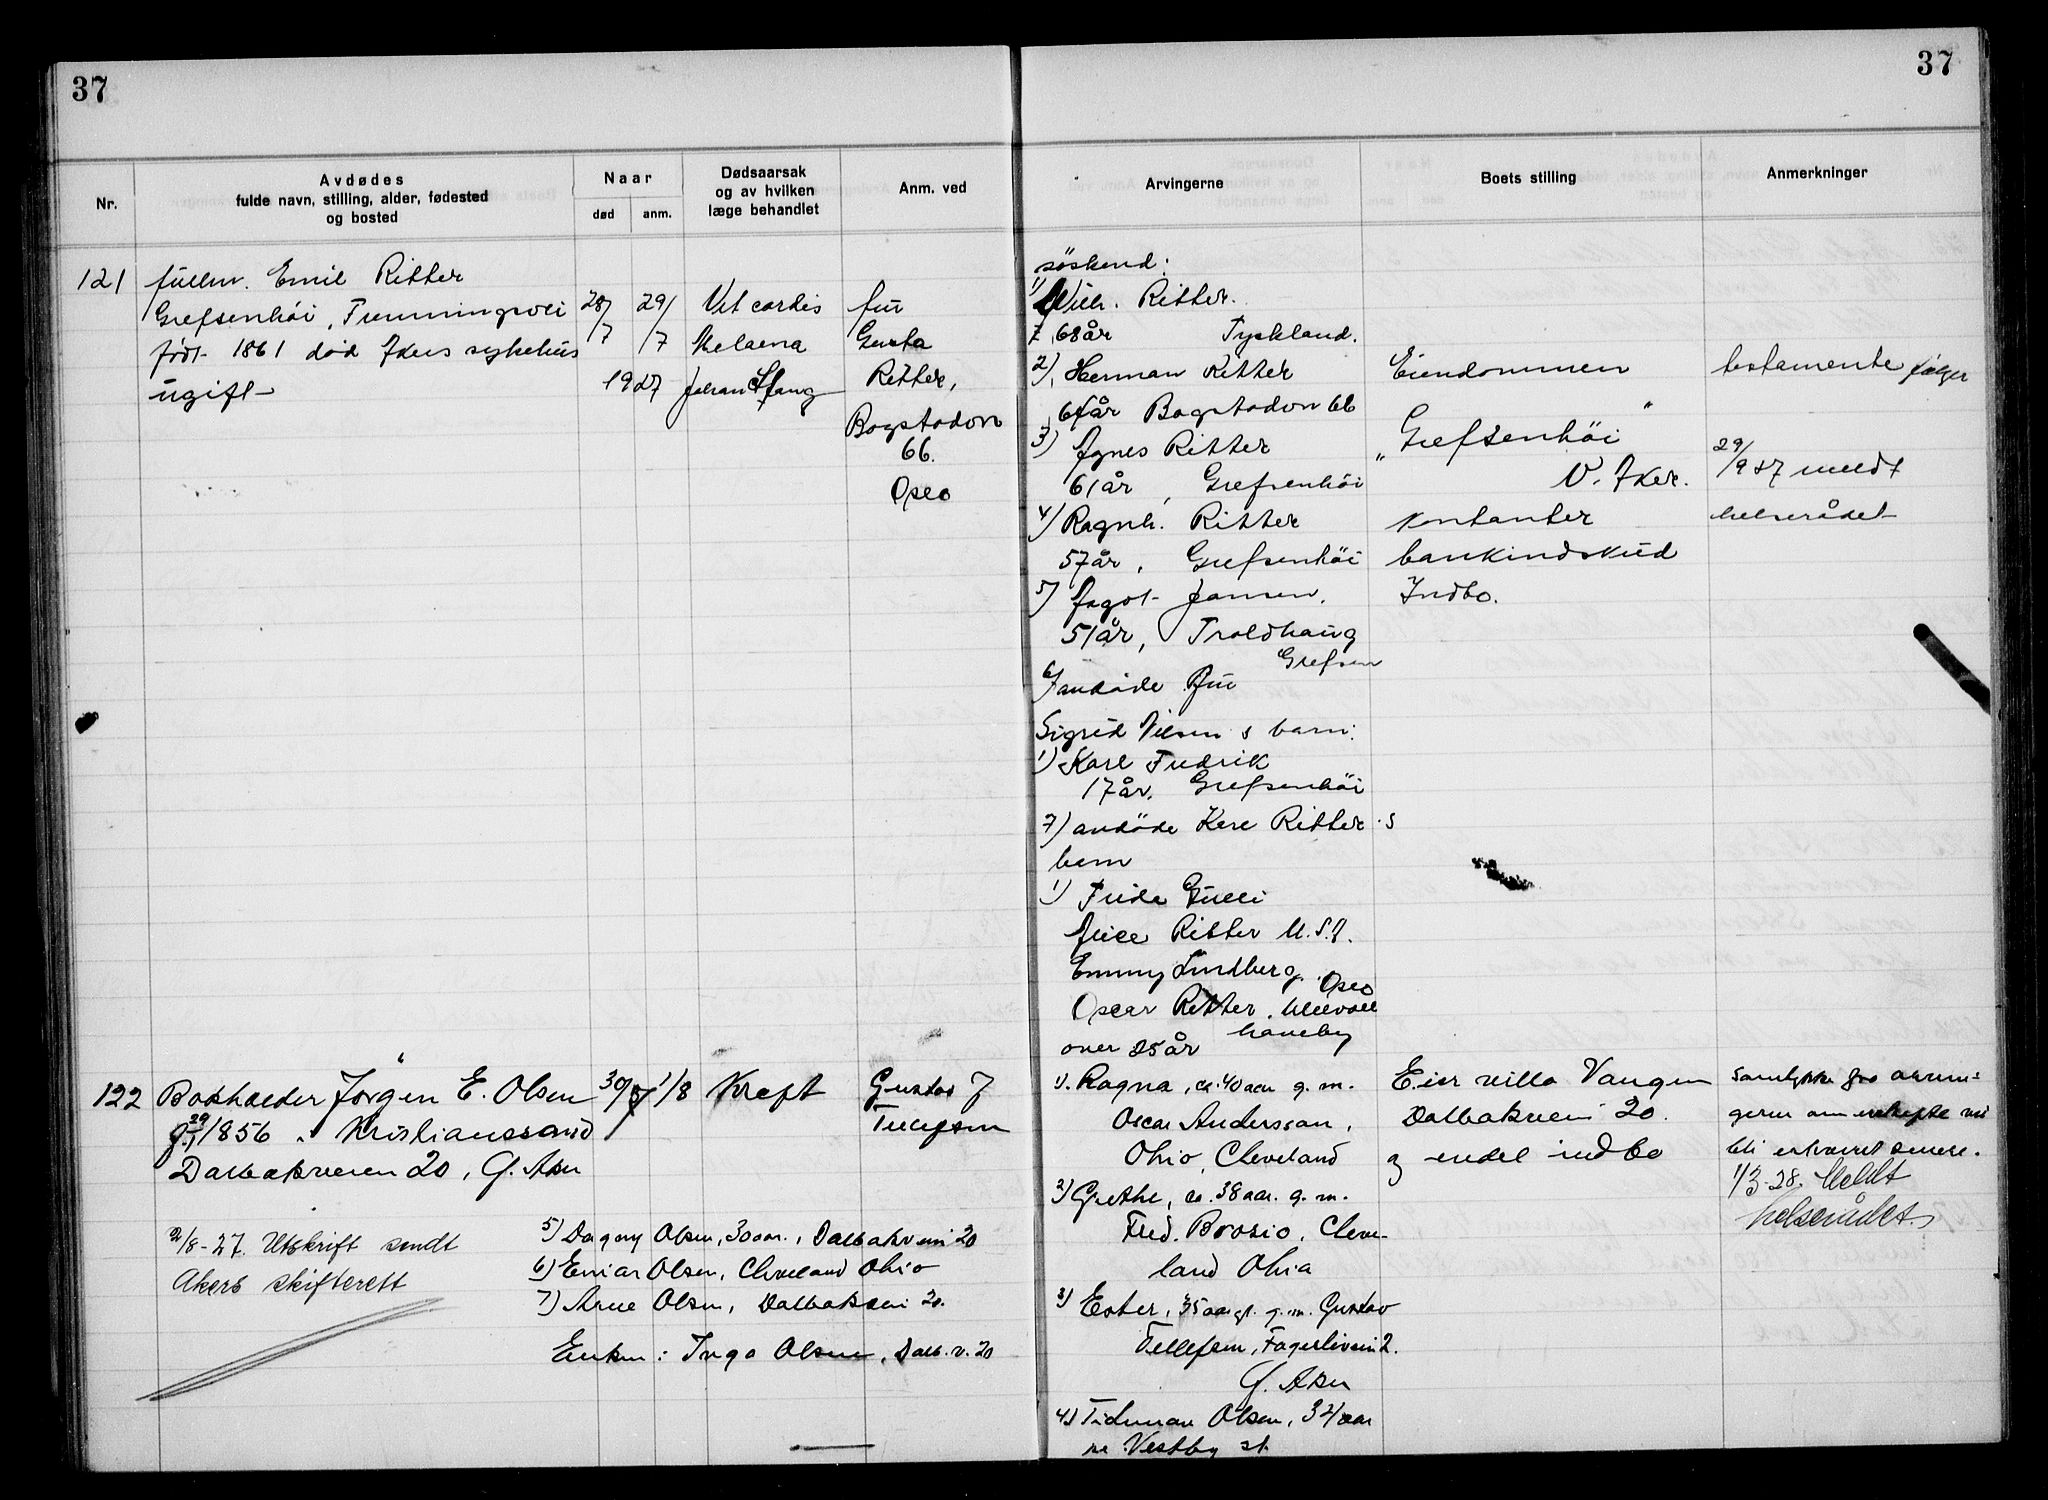 37
37
Nr.
Avdødes
fulde navn, stilling, alder, fødested
og bosted
Naar
død
anm.
Dødsaarsak
og av hvilken
læge behandlet
Anm. ved
Arvingerne
Boets stilling
Anmerkninger
121
fullm. Emil Ritter
Grefsenhöi,
født 1861 død Akers sykehus
ugift
28/7
29/7
1927
Vit cordis
Melaena
Johan
frü
Ritter,
Bogstadvn
66.
Oslo
söskend:
1) Wilh. Ritter.
68 år Tyskland.
2), Herman Ritter
år Bogstadvn 66
3) Agnes Ritter
61 år, Grefsenhöi
4) Ragnh. Ritter
57 år, Grefsenhöi
5) Jansen,
51 år, Troldhaug
Grefsen
6) avdöde frü
Sigrid Nilsen s barn:
1) Karl Fredrik
17 år. Grefsenhöi
7) avdöde Ritter s
barn
1) Frida
Alice Ritter U.S.A.
Emmy Lindberg Oslo
Oscar Ritter. Ullevaal
haveby
over 25 år
Eiendommen
"Grefsenhöi"
V. Aker.
Kontanter
bankindskud
Indbo.
testamente følger
29/9 27 meldt
helserådet
122
Bokholder Jørgen E. Olsen
f. 29/1 1856 i Kristianssand
Dalbakveien 20, Ø. Aker
30/7
1/8
Kreft
Gustav
Tellefsen
2/8-27. Utskrift sendt
Akers skifterett
5) Dagny Olsen, 30 aar., Dalbakvein 20
6) Einar Olsen, Cleveland Ohio
7) Arne Olsen, Dalbakvein 20.
Enken: Inga Olsen, Dalb.v. 20
1. Ragna, ca. 40 aar g. m.
Oscar Anderson,
Ohio, Cleveland
2) Grethe, ca. 38 aar. g. m.
Fred. Brosio, Cleve-
land Ohio
3) Ester, 35 aar gl. g. m. Gustav
Tellefsen, Fagerlivein 2.
Ø. Aker
4) Tidemann Olsen, 32 aar
Vestby st.
Eier villa Vangen
Dalbakvein 20.
og endel indbo
Samtykke fra arvin-
gerne om uskifte vil
bli erhvervet senere.
1/3-28. Meldt
helserådet.